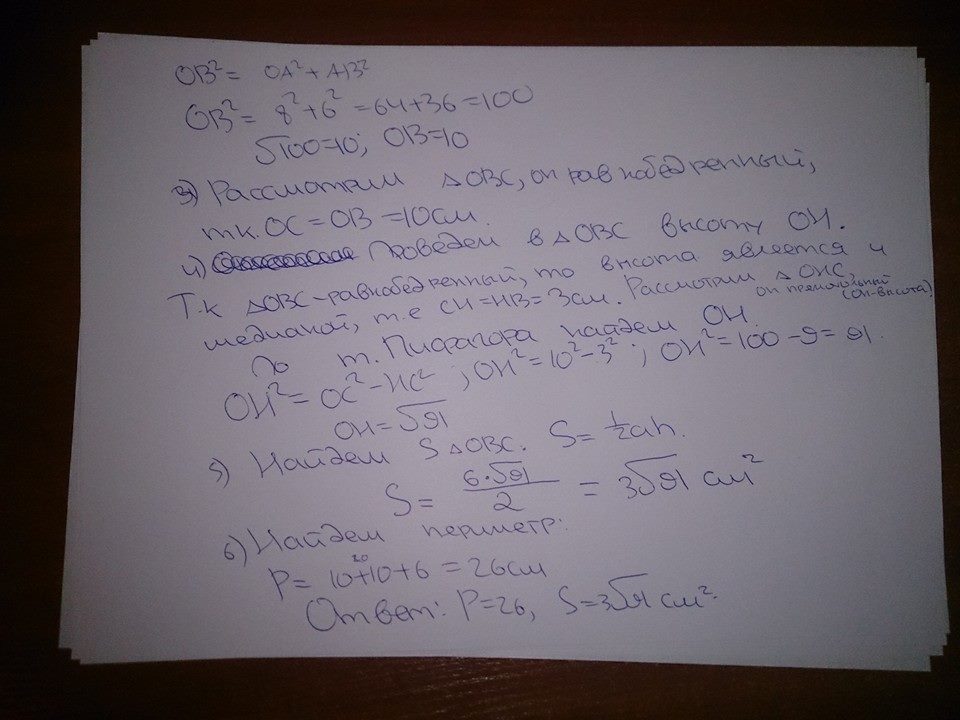 OB² = OA² + AB²
OB² = 8² + 6² = 64 + 36 = 100
√100 = 10; OB = 10
3) Рассмотрим △OBC, он равнобедренный,
т.к. OC = OB = 10см.
4) Проведем в △OBC высоту OH.
Т.к △OBC - равнобедренный, то высота является и
медианой, т.е CH = HB = 3см. Рассмотрим △OHC,
он прямоугольный
(OH-высота)
По т. Пифагора найдем OH.
OH² = OC² - HC²; OH² = 10² - 3²; OH² = 100 - 9 = 91.
OH = √91
5) Найдем S△OBC. S = ½ah.
S = 6·√91/2 = 3√91 см²
6) Найдем периметр:
20
P = 10 + 10 + 6 = 26см
Ответ: P = 26, S = 3√91 см².